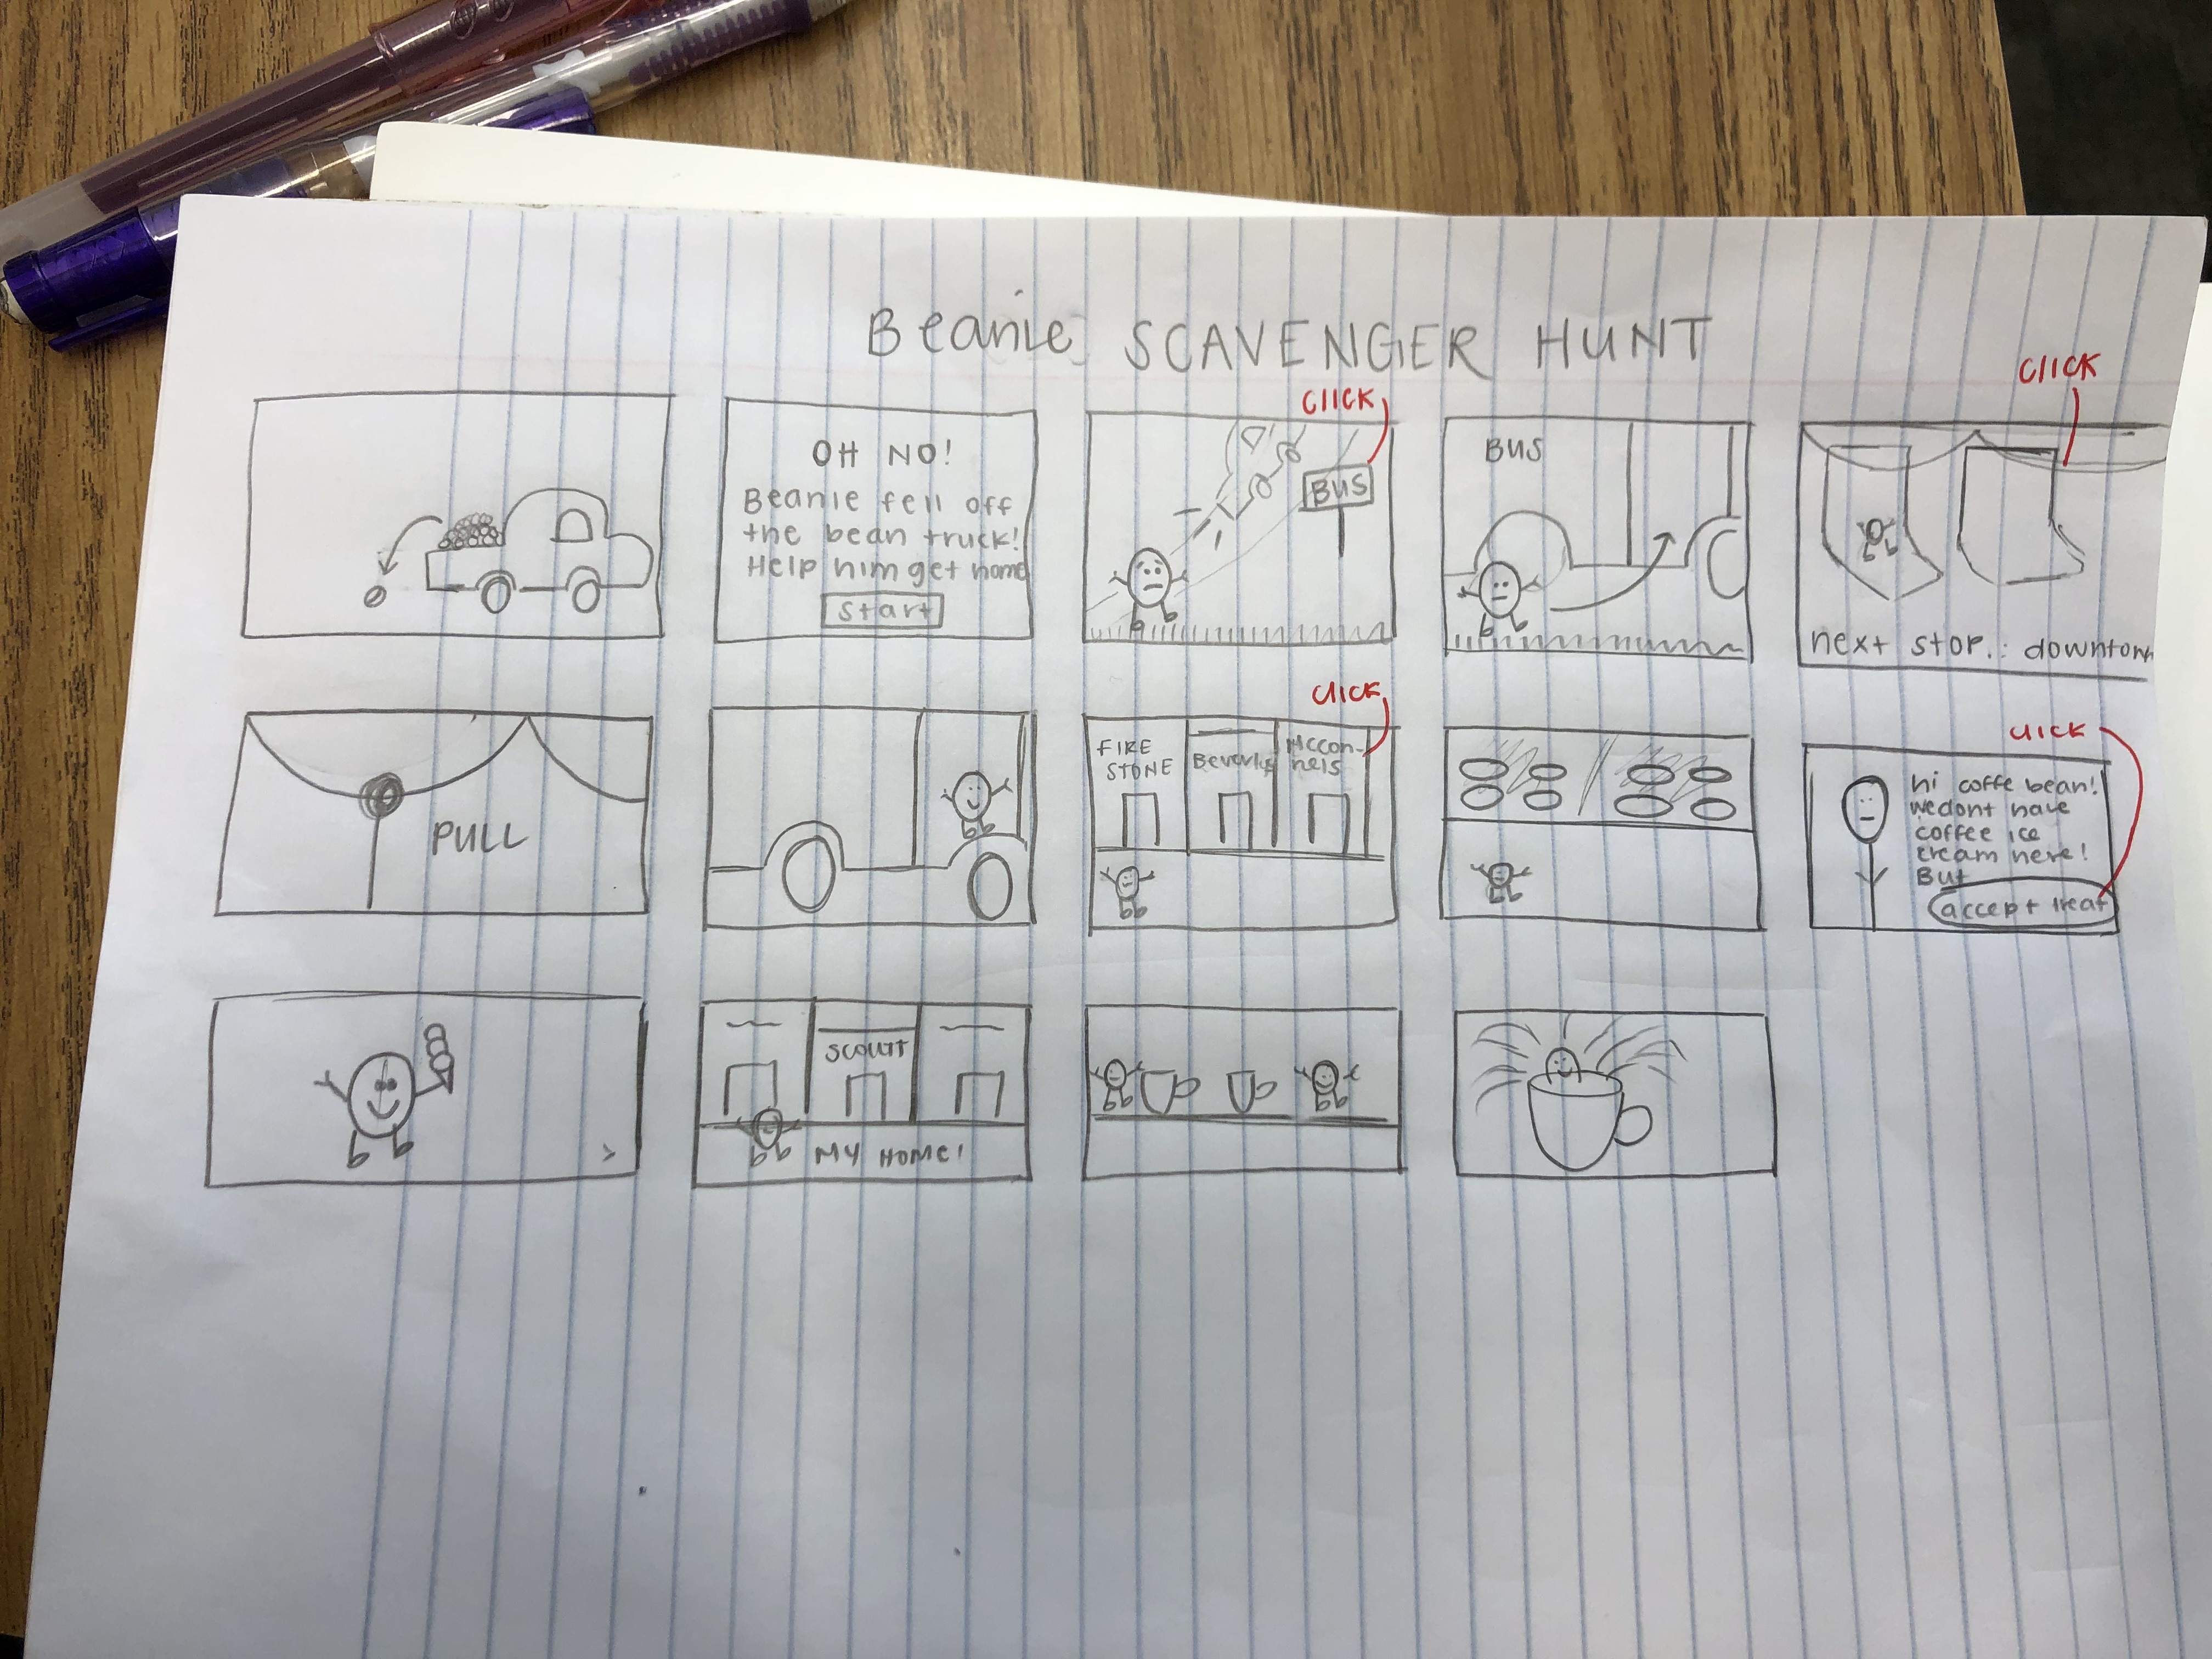 Beanie SCAVENGER HUNT
OH NO!
Beanie fell off
the bean truck!
Help him get home
start
CLICK
BUS
BUS
CLICK
next stop.: downtown
PULL
CLICK
FIRE
STONE
Beverly's
Mccon-
nels
CLICK
hi coffe bean!
We dont have
coffee ice
cream here!
But
accept treat
SCOUTT
MY HOME!